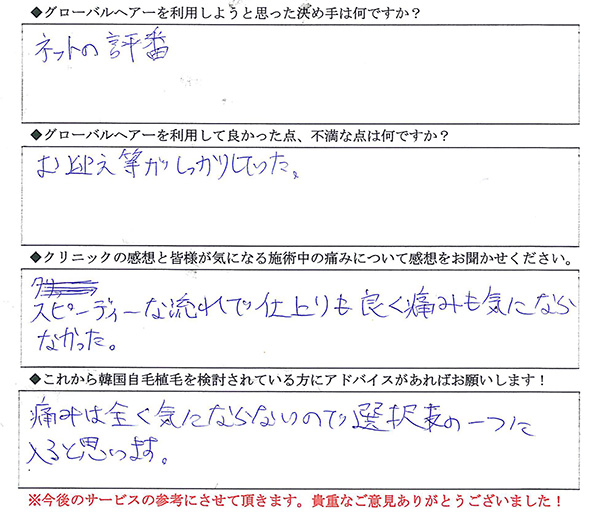 ◆グローバルヘアーを利用しようと思った決め手は何ですか？
ネットの評番
◆グローバルヘアーを利用して良かった点、不満な点は何ですか？
お迎え等がしっかりしていた。
◆クリニックの感想と皆様が気になる施術中の痛みについて感想をお聞かせください。
スピーディーな流れで仕上りも良く痛みも気になら
なかった。
◆これから韓国自毛植毛を検討されている方にアドバイスがあればお願いします！
痛みは全く気にならないので選択表の一つに
入ると思います。
※今後のサービスの参考にさせて頂きます。貴重なご意見ありがとうございました！